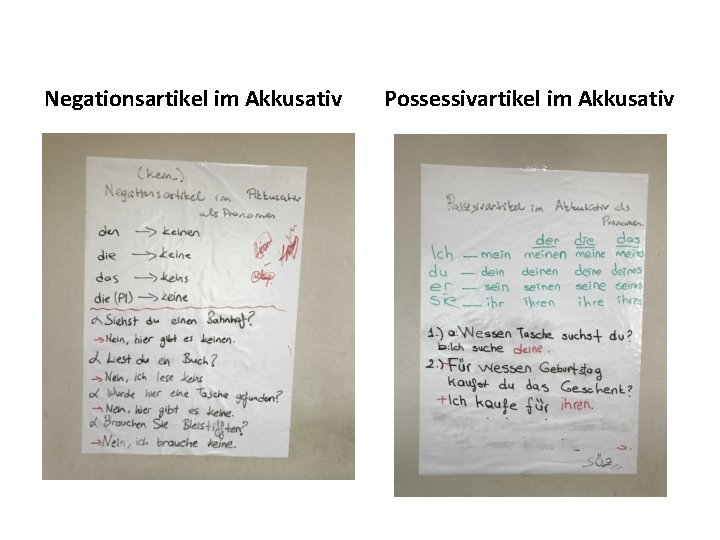 Negationsartikel im Akkusativ
(kein-)
Negationsartikel im Akkusativ
als Pronomen
den → keinen
die → keine
das → keins
die (Pl) → keine
α Siehst du einen Bahnhof?
→ Nein, hier gibt es keinen.
α Liest du en Buch?
→ Nein, ich lese keins
α Wurde hier eine Tasche gefunden?
→ Nein, hier gibt es keine.
α Brauchen Sie Bleistiften?
→ Nein, ich brauche keine.
Possessivartikel im Akkusativ
Possesivartikel im Akkusativ als
Pronomen.
der die das
Ich — mein meinen meine meins
du — dein deinen deine deines
er — sein seinen seine seins
sie — ihr ihren ihre ihres
1.) a: Wessen Tasche suchst du?
b: Ich suche deine.
2.) Für wessen Geburtstag
kaufst du das Geschenk?
+ Ich kaufe für ihren.
SÖZ